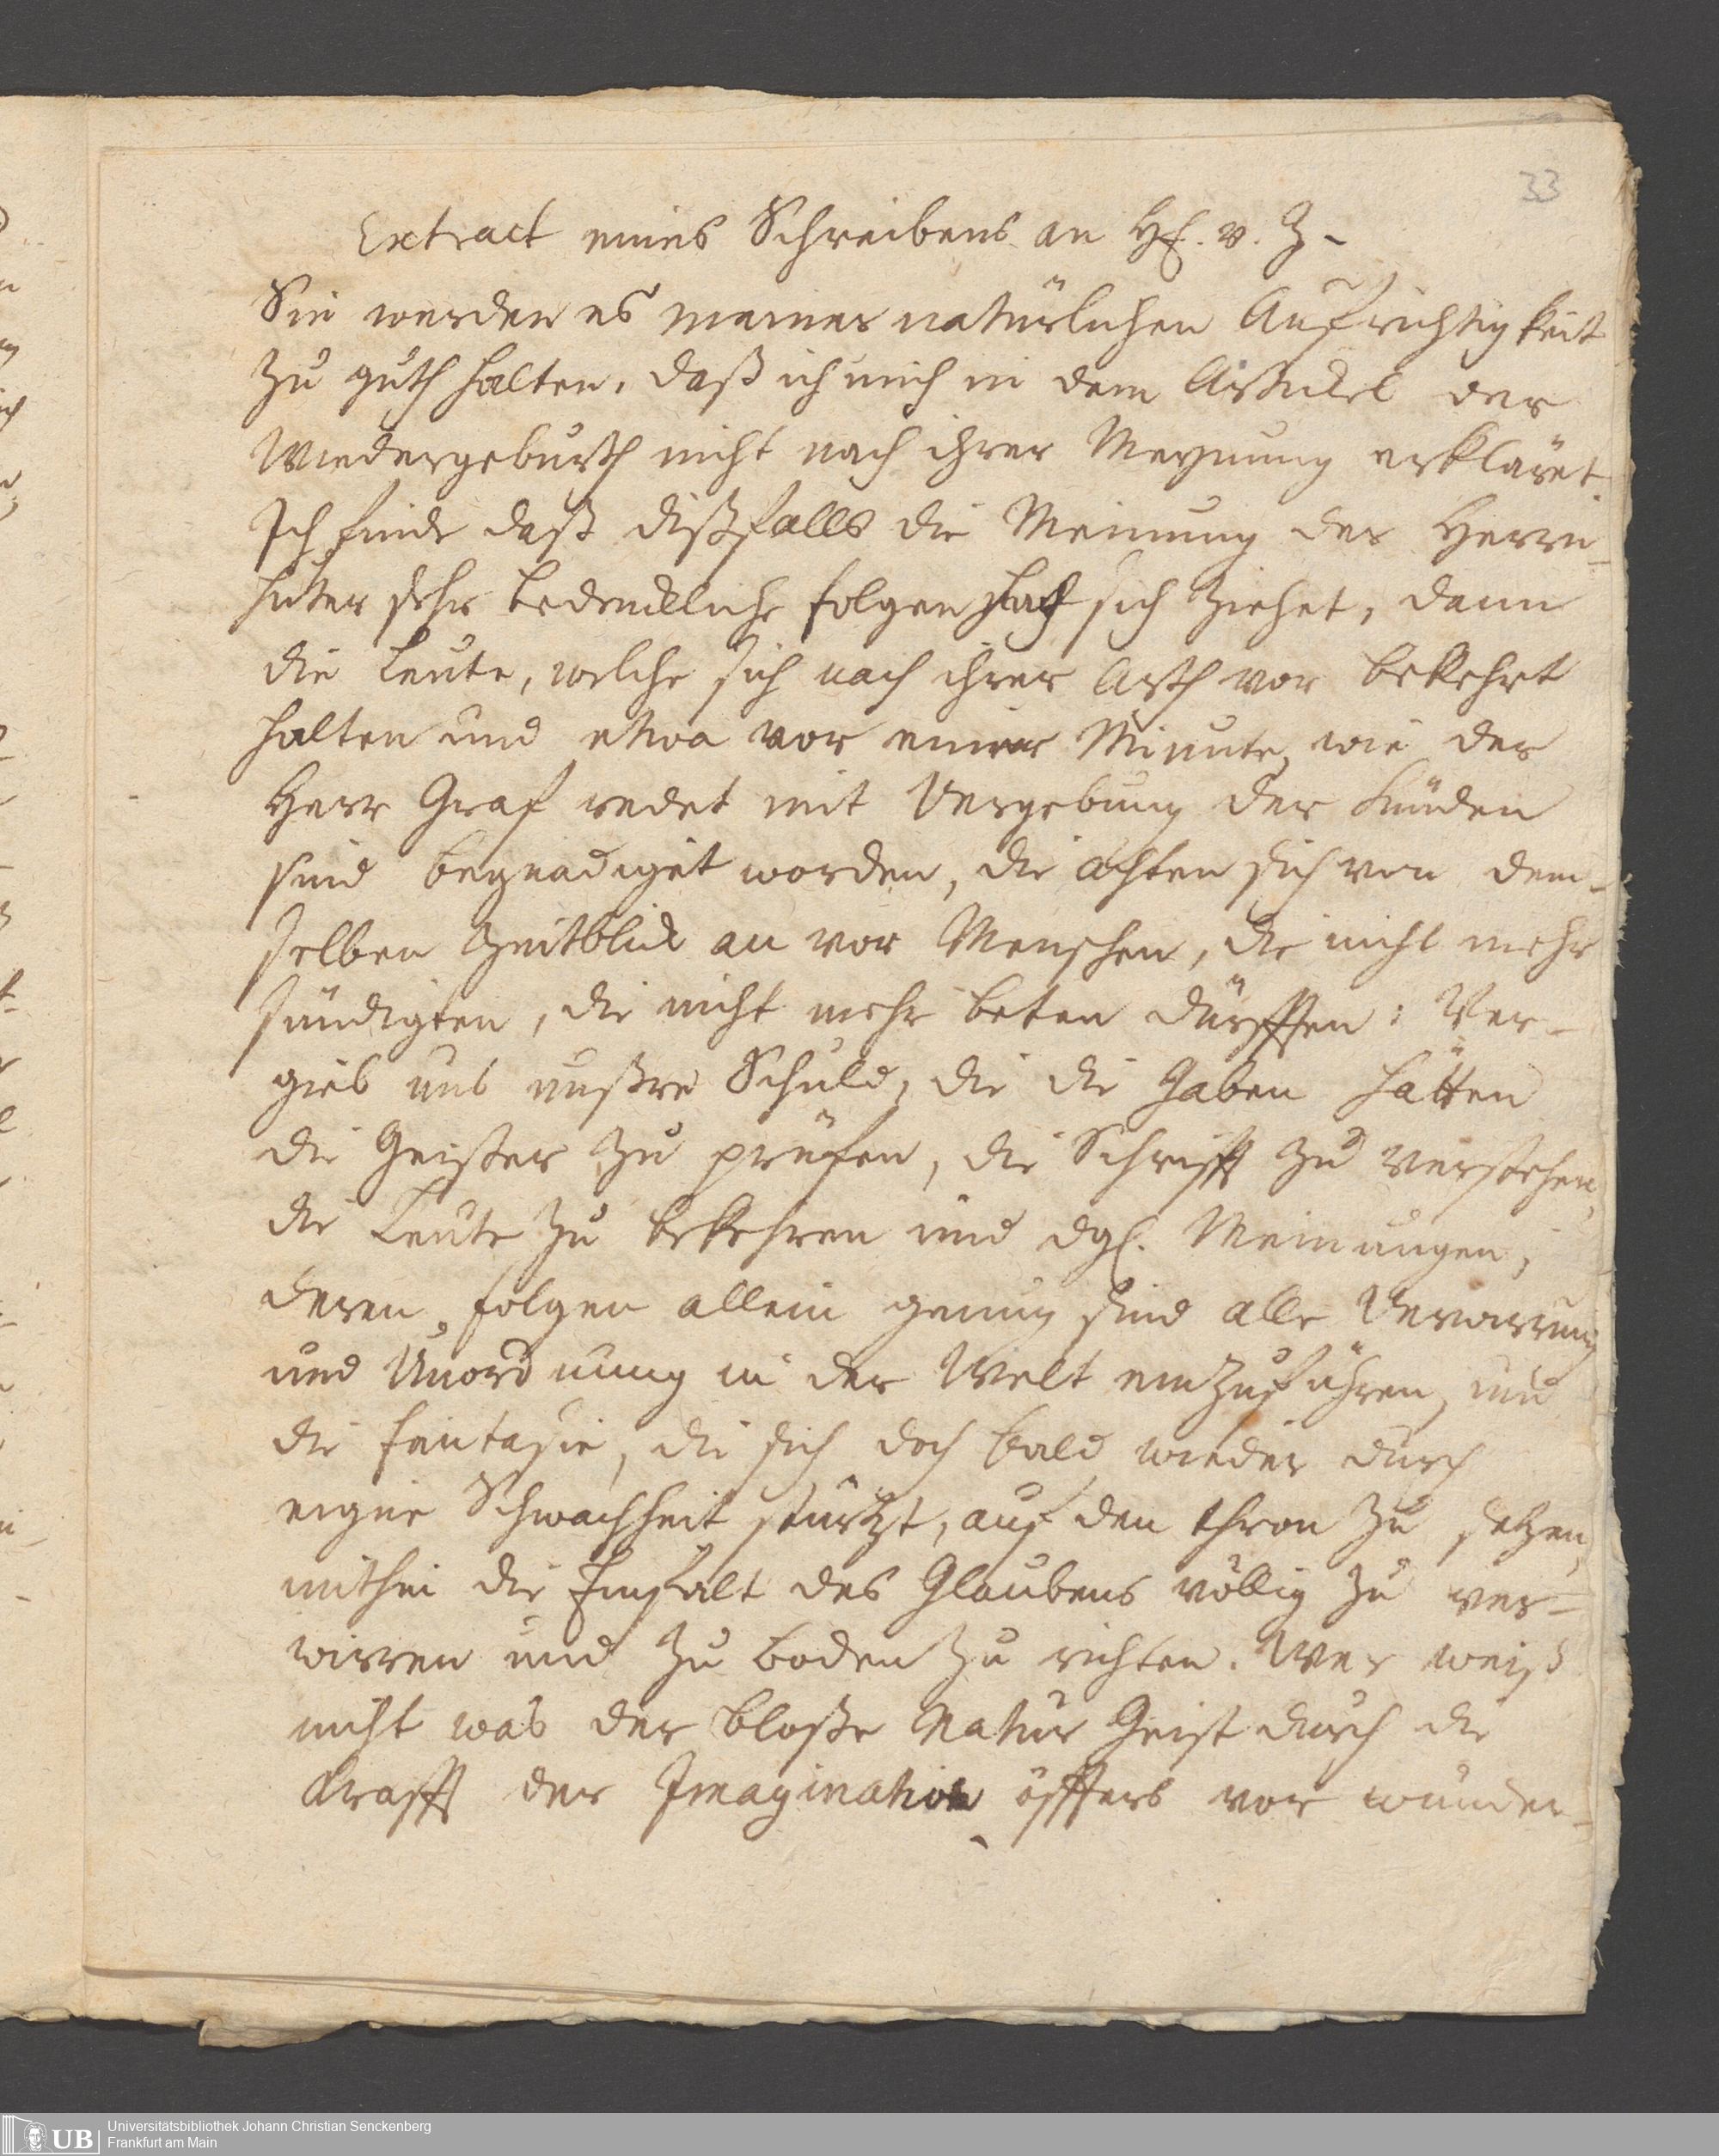 33
Extract eines Schreibens an H. v. Z.
Sie werden es meiner natürlichen Aufrichtigkeit
zu guth halten, daß ich mich in dem Artickel der
Wiedergeburth nicht nach ihrer Meynung erkläret.
Ich finde daß dißfalls die Meinung der Herrn-
huter sehr bedenckliche folgen nach sich ziehet, dann
die Leute, welche sich nach ihrer Arth vor bekehrt
halten und etwa vor einer Minute, wie der
Herr Graf redet mit Vergebung der Sünden
sind begnadiget worden, die achten sich von dem-
selben Zeitblick an vor Menschen, die nicht mehr
sündigten, die nicht mehr beten dürfften: Ver-
gieb uns unßre Schuld, die die Gaben hätten
die Geister zu prüfen, die Schrifft zu verstehen,
die Leute zu bekehren und dgl. Meinungen,
deren folgen allein genug sind alle Verwirrung
und Unordnung in der Welt einzuführen, und
die fantasie, die sich doch bald wieder durch
eigne Schwachheit stürtzt, auf den thron zu setzen,
mithin die Einfalt des Glaubens völlig zu ver-
wirren und zu boden zu richten. Wer weiß
nicht was der bloße Natur Geist durch die
Krafft der Imagination öffters vor wunder-
UB
Universitätsbibliothek Johann Christian Senckenberg
Frankfurt am Main